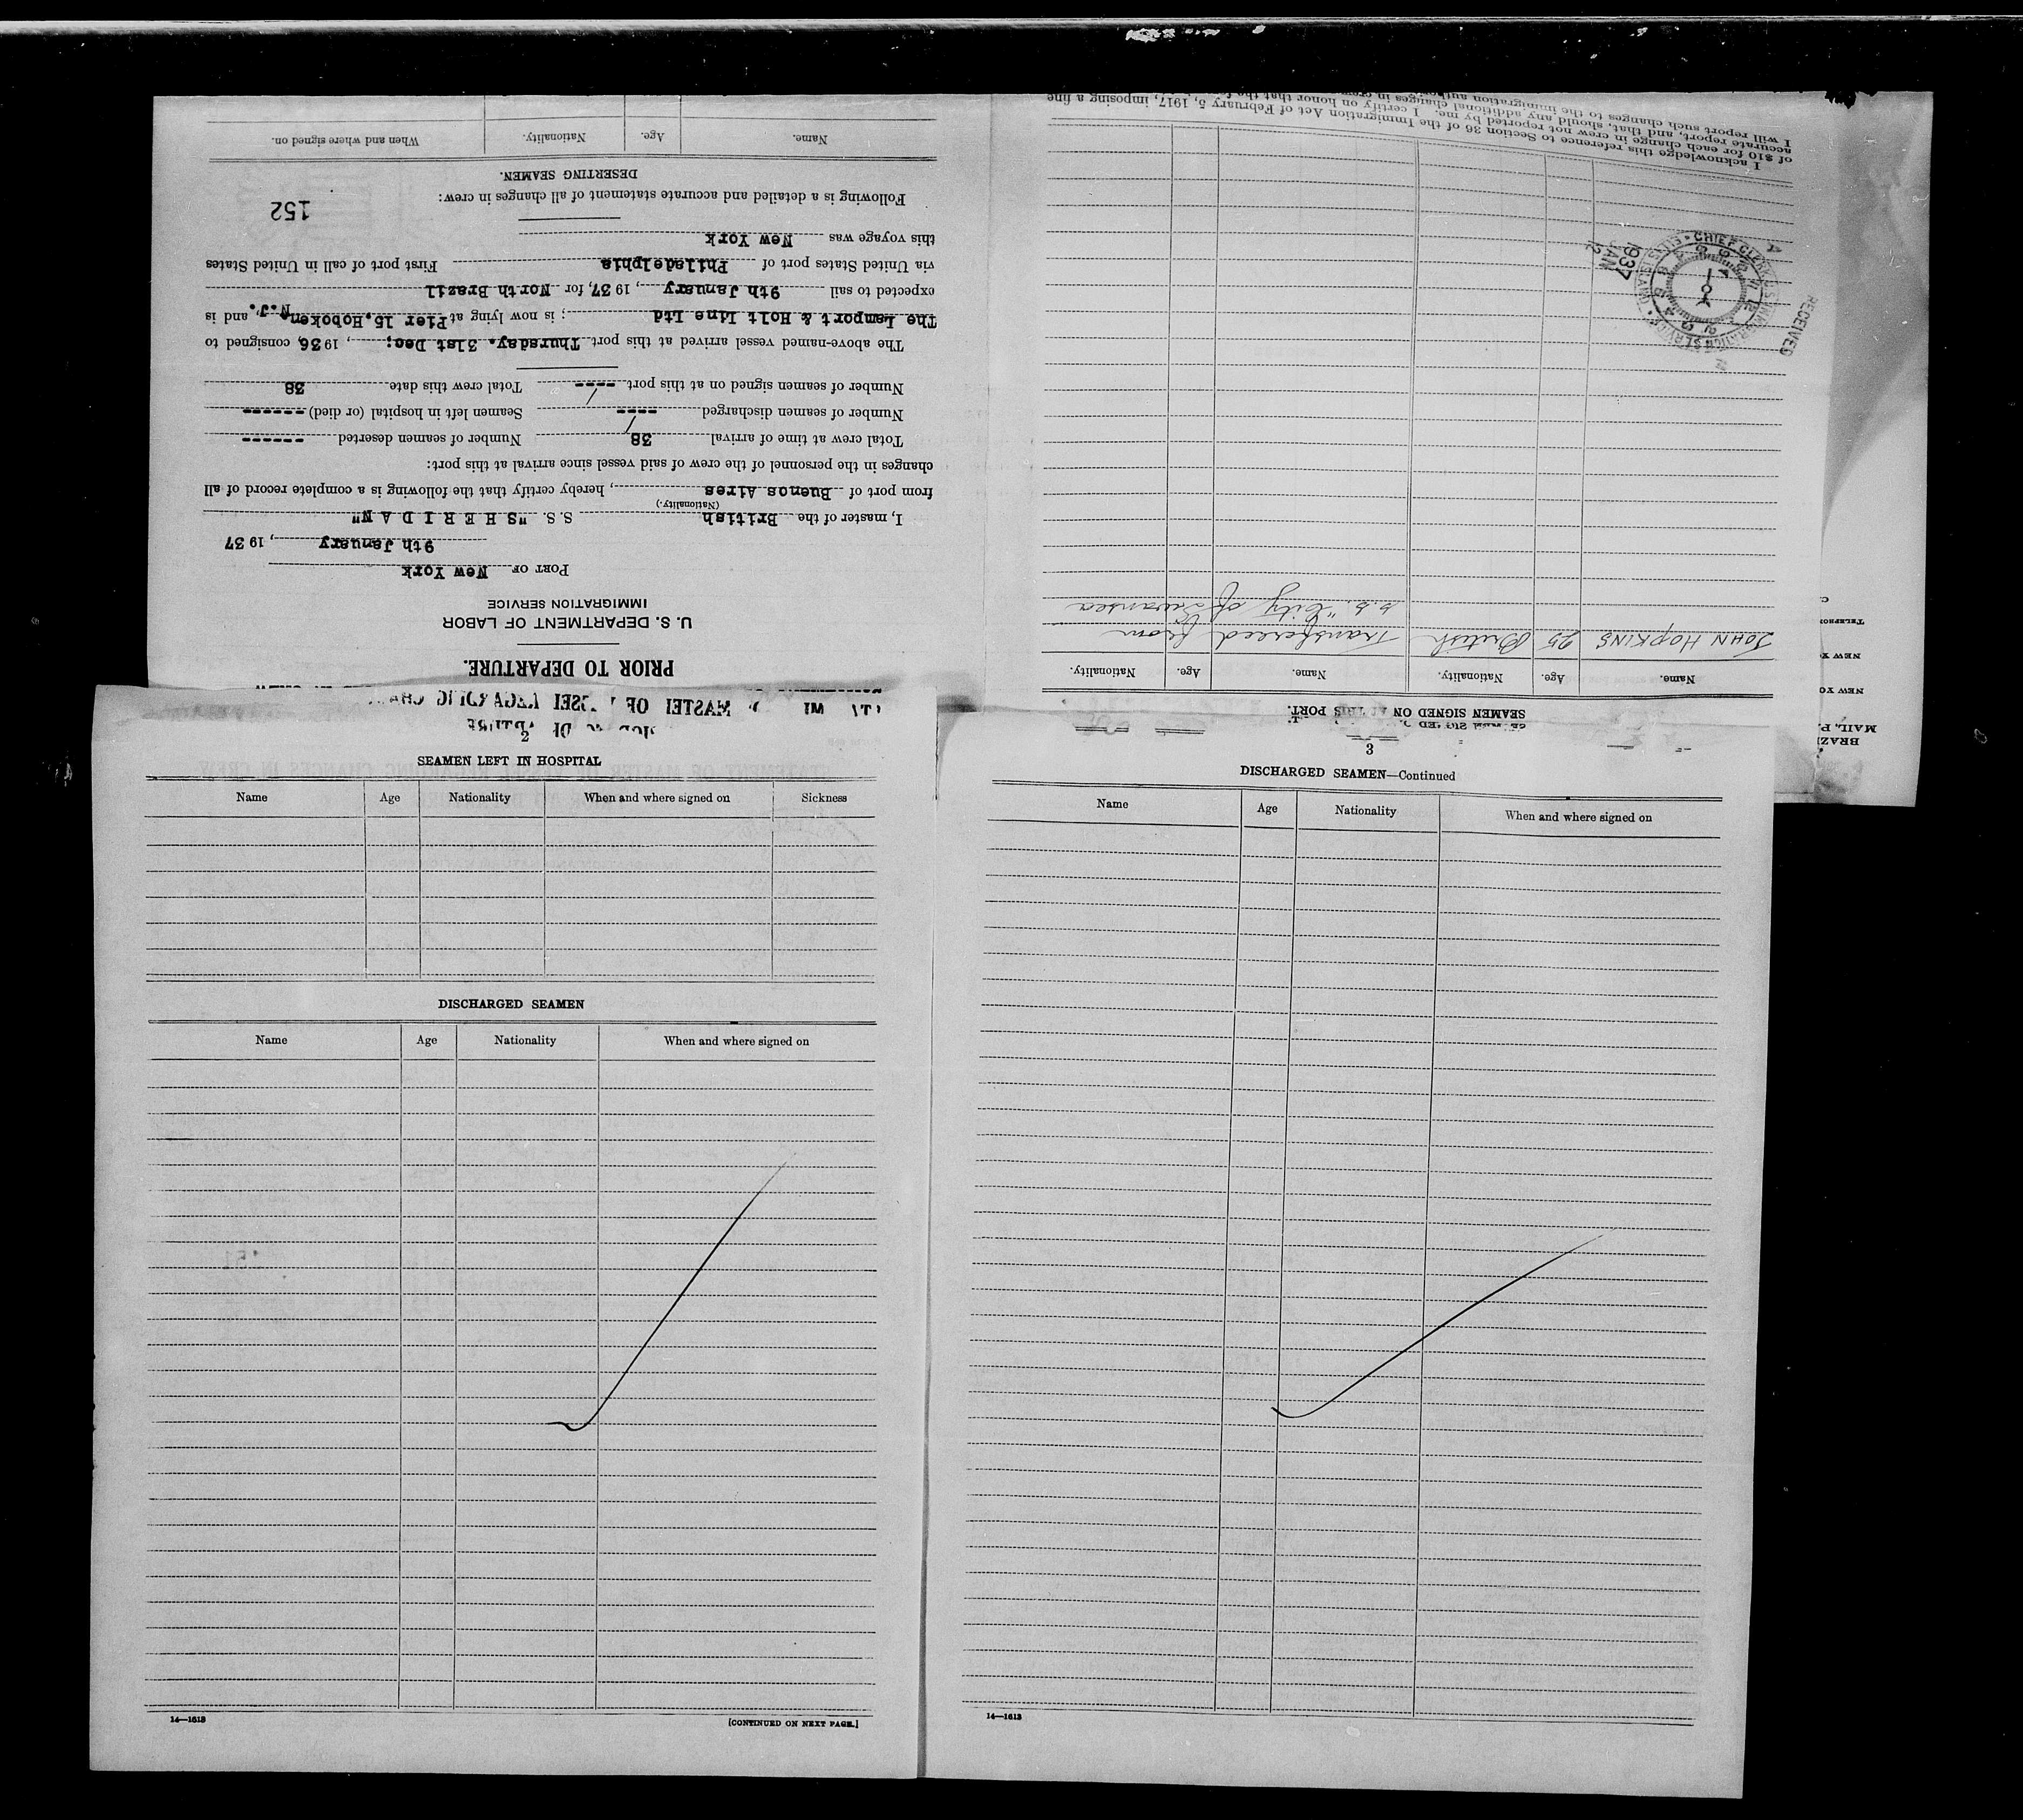 PRIOR TO DEPARTURE.
U. S. DEPARTMENT OF LABOR
IMMIGRATION SERVICE
PORT OF New York
9th January, 1937
I, master of the British S. S. "S H E R I D A N"
(Nationality.)
from port of Buenos Aires, hereby certify that the following is a complete record of all
changes in the personnel of the crew of said vessel since arrival at this port:
Total crew at time of arrival 38 Number of seamen deserted ------
Number of seamen discharged ---- Seamen left in hospital (or died) ------
Number of seamen signed on at this port ---- Total crew this date 38
The above-named vessel arrived at this port Thursday. 31st Dec;, 1936, consigned to
The Lamport & Holt Line Ltd; is now lying at Pier 15, Hoboken N.J., and is
expected to sail 9th January, 1937, for North Brazil
via United States port of Philadelphia First port of call in United States
this voyage was New York
152
Following is a detailed and accurate statement of all changes in crew:
DESERTING SEAMEN.
Name. Age. Nationality. When and where signed on.
SEAMEN SIGNED ON AT THIS PORT.
Name. Age. Nationality. Name. Age. Nationality.
JOHN HOPKINS 25 British Transfered from
S.S. "City of Swansea
RECEIVED
CHIEF CLERK U.S. IMMIGRATION SERVICE
1937
JAN
12
I acknowledge this reference to Section 36 of the Immigration Act of February 5, 1917, imposing a fine
of $10 for each change in crew not reported by me. I certify on honor that the
accurate report, and that, should any additional changes in crew
I will report such changes to the immigration
BRAZI
MAIL, P.
NEW YO
NEW Y
TELEPHO
2
SEAMEN LEFT IN HOSPITAL
Name Age Nationality When and where signed on Sickness
DISCHARGED SEAMEN
Name Age Nationality When and where signed on
14—1613 [CONTINUED ON NEXT PAGE.]
3
DISCHARGED SEAMEN—Continued
Name Age Nationality When and where signed on
14—1613